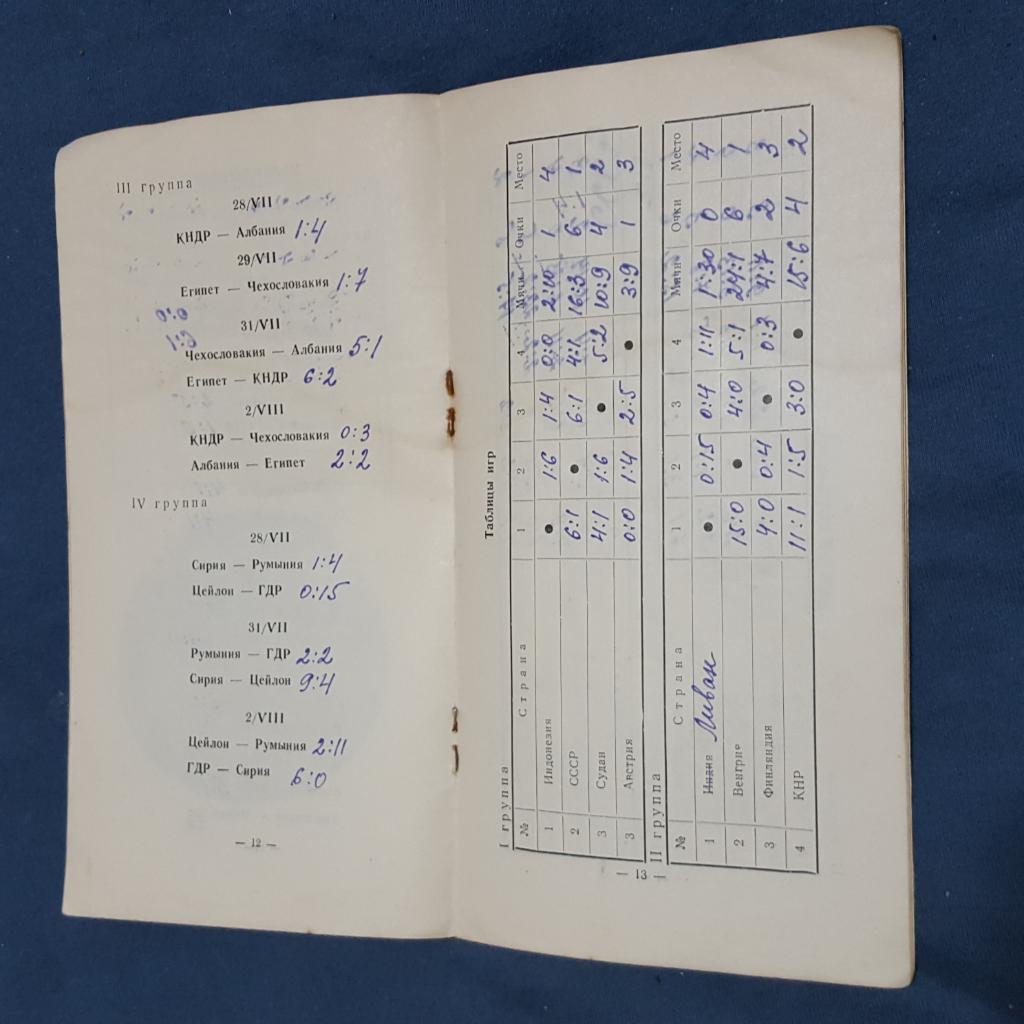 III группа
28/VII
КНДР — Албания 1:4
29/VII
Египет — Чехословакия 1:7
31/VII
Чехословакия — Албания 5:1
Египет — КНДР 6:2
2/VIII
КНДР — Чехословакия 0:3
Албания — Египет 2:2
IV группа
28/VII
Сирия — Румыния 1:4
Цейлон — ГДР 0:15
31/VII
Румыния — ГДР 2:2
Сирия — Цейлон 9:4
2/VIII
Цейлон — Румыния 2:11
ГДР — Сирия 6:0
— 12 —
Таблицы игр
I группа
№ Страна 1 2 3 4 Мячи Очки Место
1 Индонезия ● 1:6 1:4 0:0 2:10 1 4
2 СССР 6:1 ● 6:1 4:1 16:3 6 1
3 Судан 4:1 1:6 ● 5:2 10:9 4 2
3 Австрия 0:0 1:4 2:5 ● 3:9 1 3
II группа
№ Страна 1 2 3 4 Мячи Очки Место
1 Индия Ливан ● 0:15 0:4 1:11 1:30 0 4
2 Венгрия 15:0 ● 4:0 5:1 24:1 6 1
3 Финляндия 4:0 0:4 ● 0:3 4:7 2 3
4 КНР 11:1 1:5 3:0 ● 15:6 4 2
— 13 —